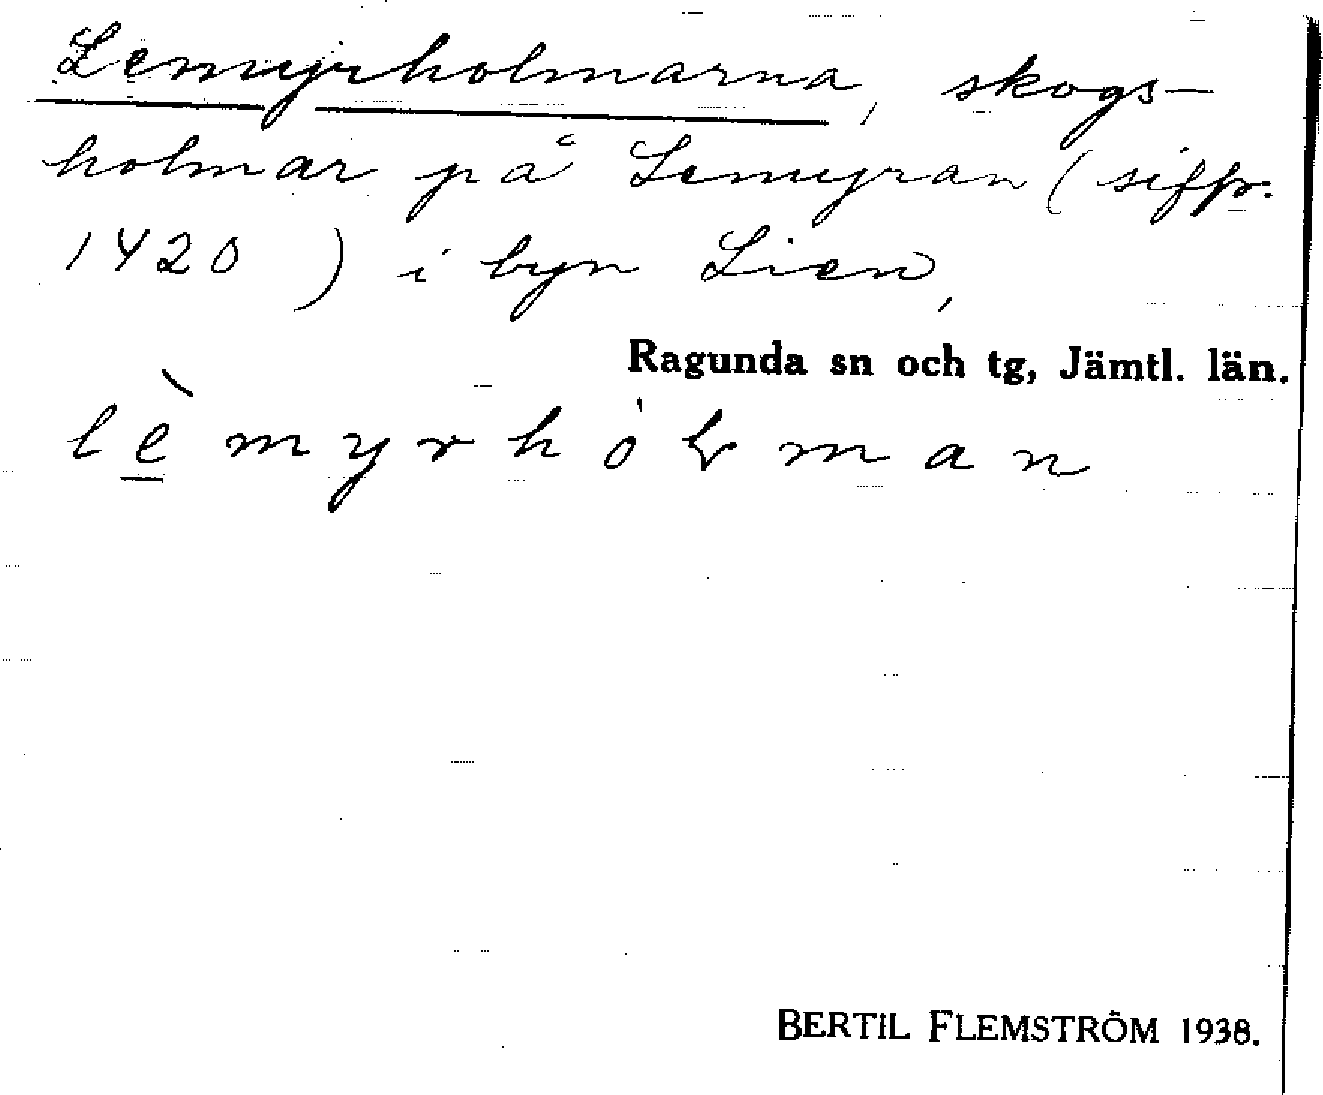 Lemyrholmarna, skogs-
holmar på Lemyran (siffr.
1420 ) i byn Lien,
Ragunda sn och tg, Jämtl. län.
lèmyrhólman
BERTIL FLEMSTRÖM 1938.